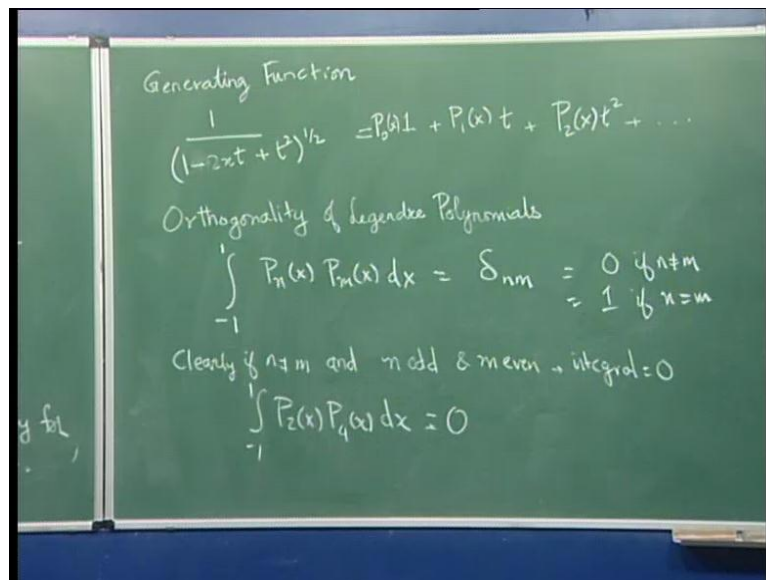 Generating Function
1 / (1-2xt + t²)^1/2 = P₀(x)1 + P₁(x) t + P₂(x)t² + ...
Orthogonality of Legendre Polynomials
∫₋₁¹ Pₙ(x) Pₘ(x) dx = δₙₘ = 0 if n≠m
= 1 if n=m
Clearly if n≠m and n odd & m even → integral=0
∫₋₁¹ P₂(x) P₄(x) dx = 0
y for